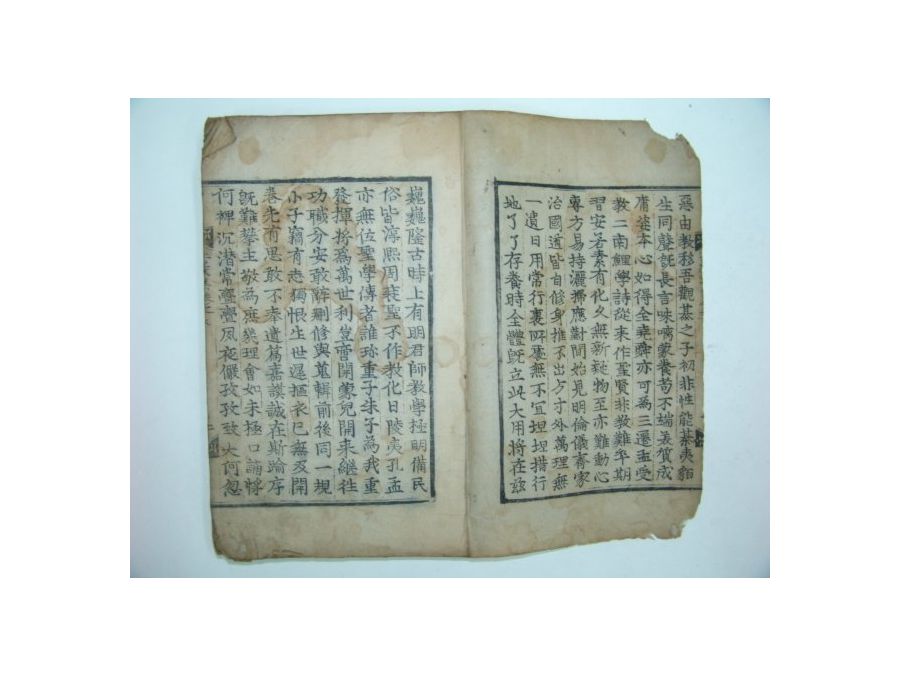 惡由教移吾觀綦之子初非性能綦夷貊
生同聲旣長言味喃家養苟不端美質成
庸莝本心如得全堯舜亦可爲三遷孟受
教二南鯉學詩從來作聖賢非敎難乎期
習安若素有化久無新疑物至亦難動心
專方易持灑掃應對間始見明倫儀齊家
治國道皆自修身推不出方寸外萬理無
一遺日用常行裏所處無不宜坦坦措行
地了了存養時全體旣立此大用將在玆
巍巍隆古時上有明君師教學極明備民
俗皆淳熙周衰聖不作教化日陵夷孔孟
亦無位聖學傳者誰珎重子朱子為我重
發揮將爲萬世利豈啻開蒙兒開來繼往
功職分安敢辭刪修與蒐輯前後同一規
小子竊有志獨恨生世遲摳衣已無及開
卷先有思敢不奉遺篇嘉謨誠在斯踰序
旣難擧主敬爲庶幾理會如未極口論將
何裨沉潛常亹亹夙夜儼孜孜致大何忽